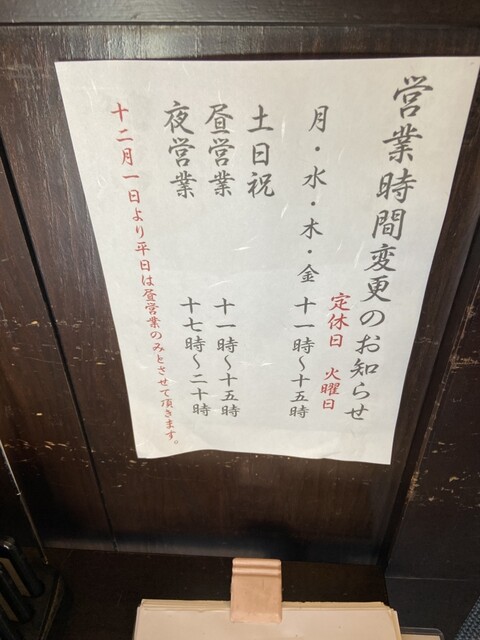 営業時間変更のお知らせ
定休日 火曜日
月・水・木・金 十一時〜十五時
土日祝
昼営業 十一時〜十五時
夜営業 十七時〜二十時
十二月一日より平日は昼営業のみとさせて頂きます。